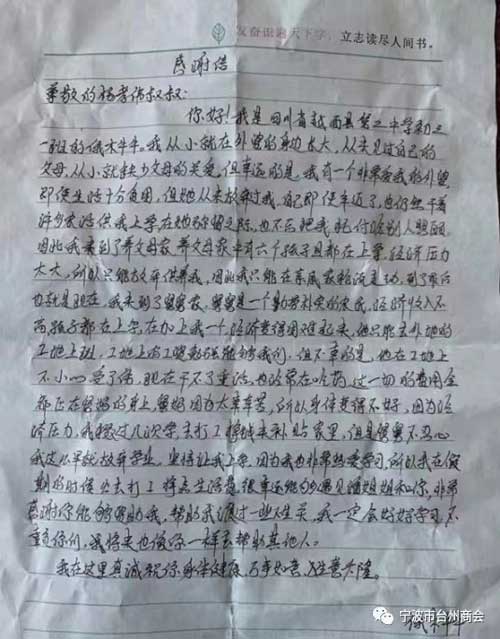 发奋识遍天下字,立志读尽人间书。
感谢信
尊敬的杨孝伟叔叔:
你好!我是四川省越西县第二中学初三
一班的俄木牛牛。我从小就在外婆的身边长大,从未见过自己的
父母,从小就缺少父母的关爱,但幸运的是,我有一个非常爱我的外婆,
即使生活十分贫困,但她从未放弃过我,自己即使年迈了,也仍然干着
许多农活供我上学在她弥留之际,也不忘把我托付给别人照顾,
因此我来到了养父母家养父母家中有六个孩子且都在上学,经济压力
太大,所以只能放弃供养我,因此我只能在亲戚家轮流走动,到了最后
也就是现在,我来到了舅舅家,舅舅是一个勤劳朴实的农民,经济收入不
高孩子都在上学,在加上我一个经济变得困难起来,他只能去外地的
工地上班,工地上的工资勉强能够我们,但不幸的是,他在工地上
不小心受了伤,现在干不了重活,也经常在吃药,这一切的费用全
都压在舅妈的身上,舅妈因为太辛苦,所以身体变得不好,因为经
济压力,我辍过几次学,去打工挣钱来补贴家里,但是舅舅不忍心
我这么早就放弃学业,坚持让我上学,因为我也非常热爱学习,所以我在假
期的时候会去打工挣点生活费很幸运能够遇见潘姐姐和你,非常
感谢你能够资助我,帮助我渡过一些难关,我一定会好好学习,不
辜负你们,我将来也像你一样去帮助其他人。
我在这里真诚祝你身体健康,万事如意,生意兴隆。
俄木牛牛
宁波市台州商会